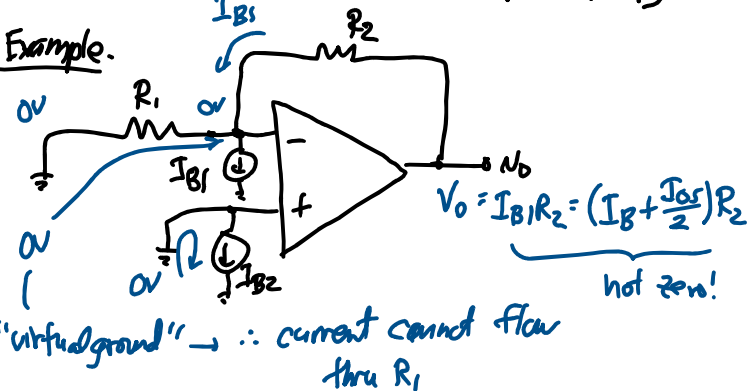 I_B1
R2
Example.
0V
R1
0V
I_B1
−
+
v_o
V_o = I_B1 R2 = (I_B + I_os/2) R2
not zero!
0V
0V
I_B2
"virtual ground" → ∴ current cannot flow
thru R1